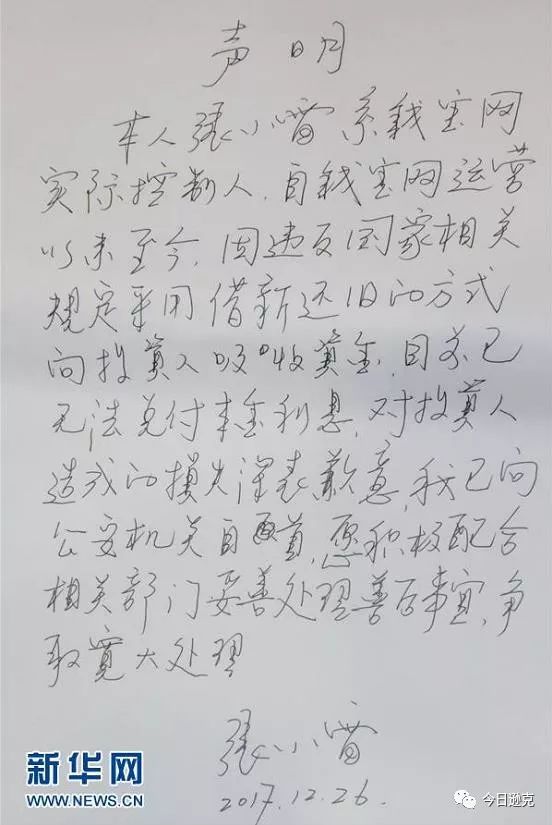 声明
本人張小雷系钱宝网
实际控制人，自钱宝网运营
以来至今，因违反国家相关
规定采用借新还旧的方式
向投资人吸收资金，目前已
无法兑付本金利息，对投资人
造成的损失深表歉意，我已向
公安机关自首，愿积极配合
相关部门妥善处理善后事宜，争
取宽大处理
張小雷
2017.12.26.
新华网
WWW.NEWS.CN
今日逊克